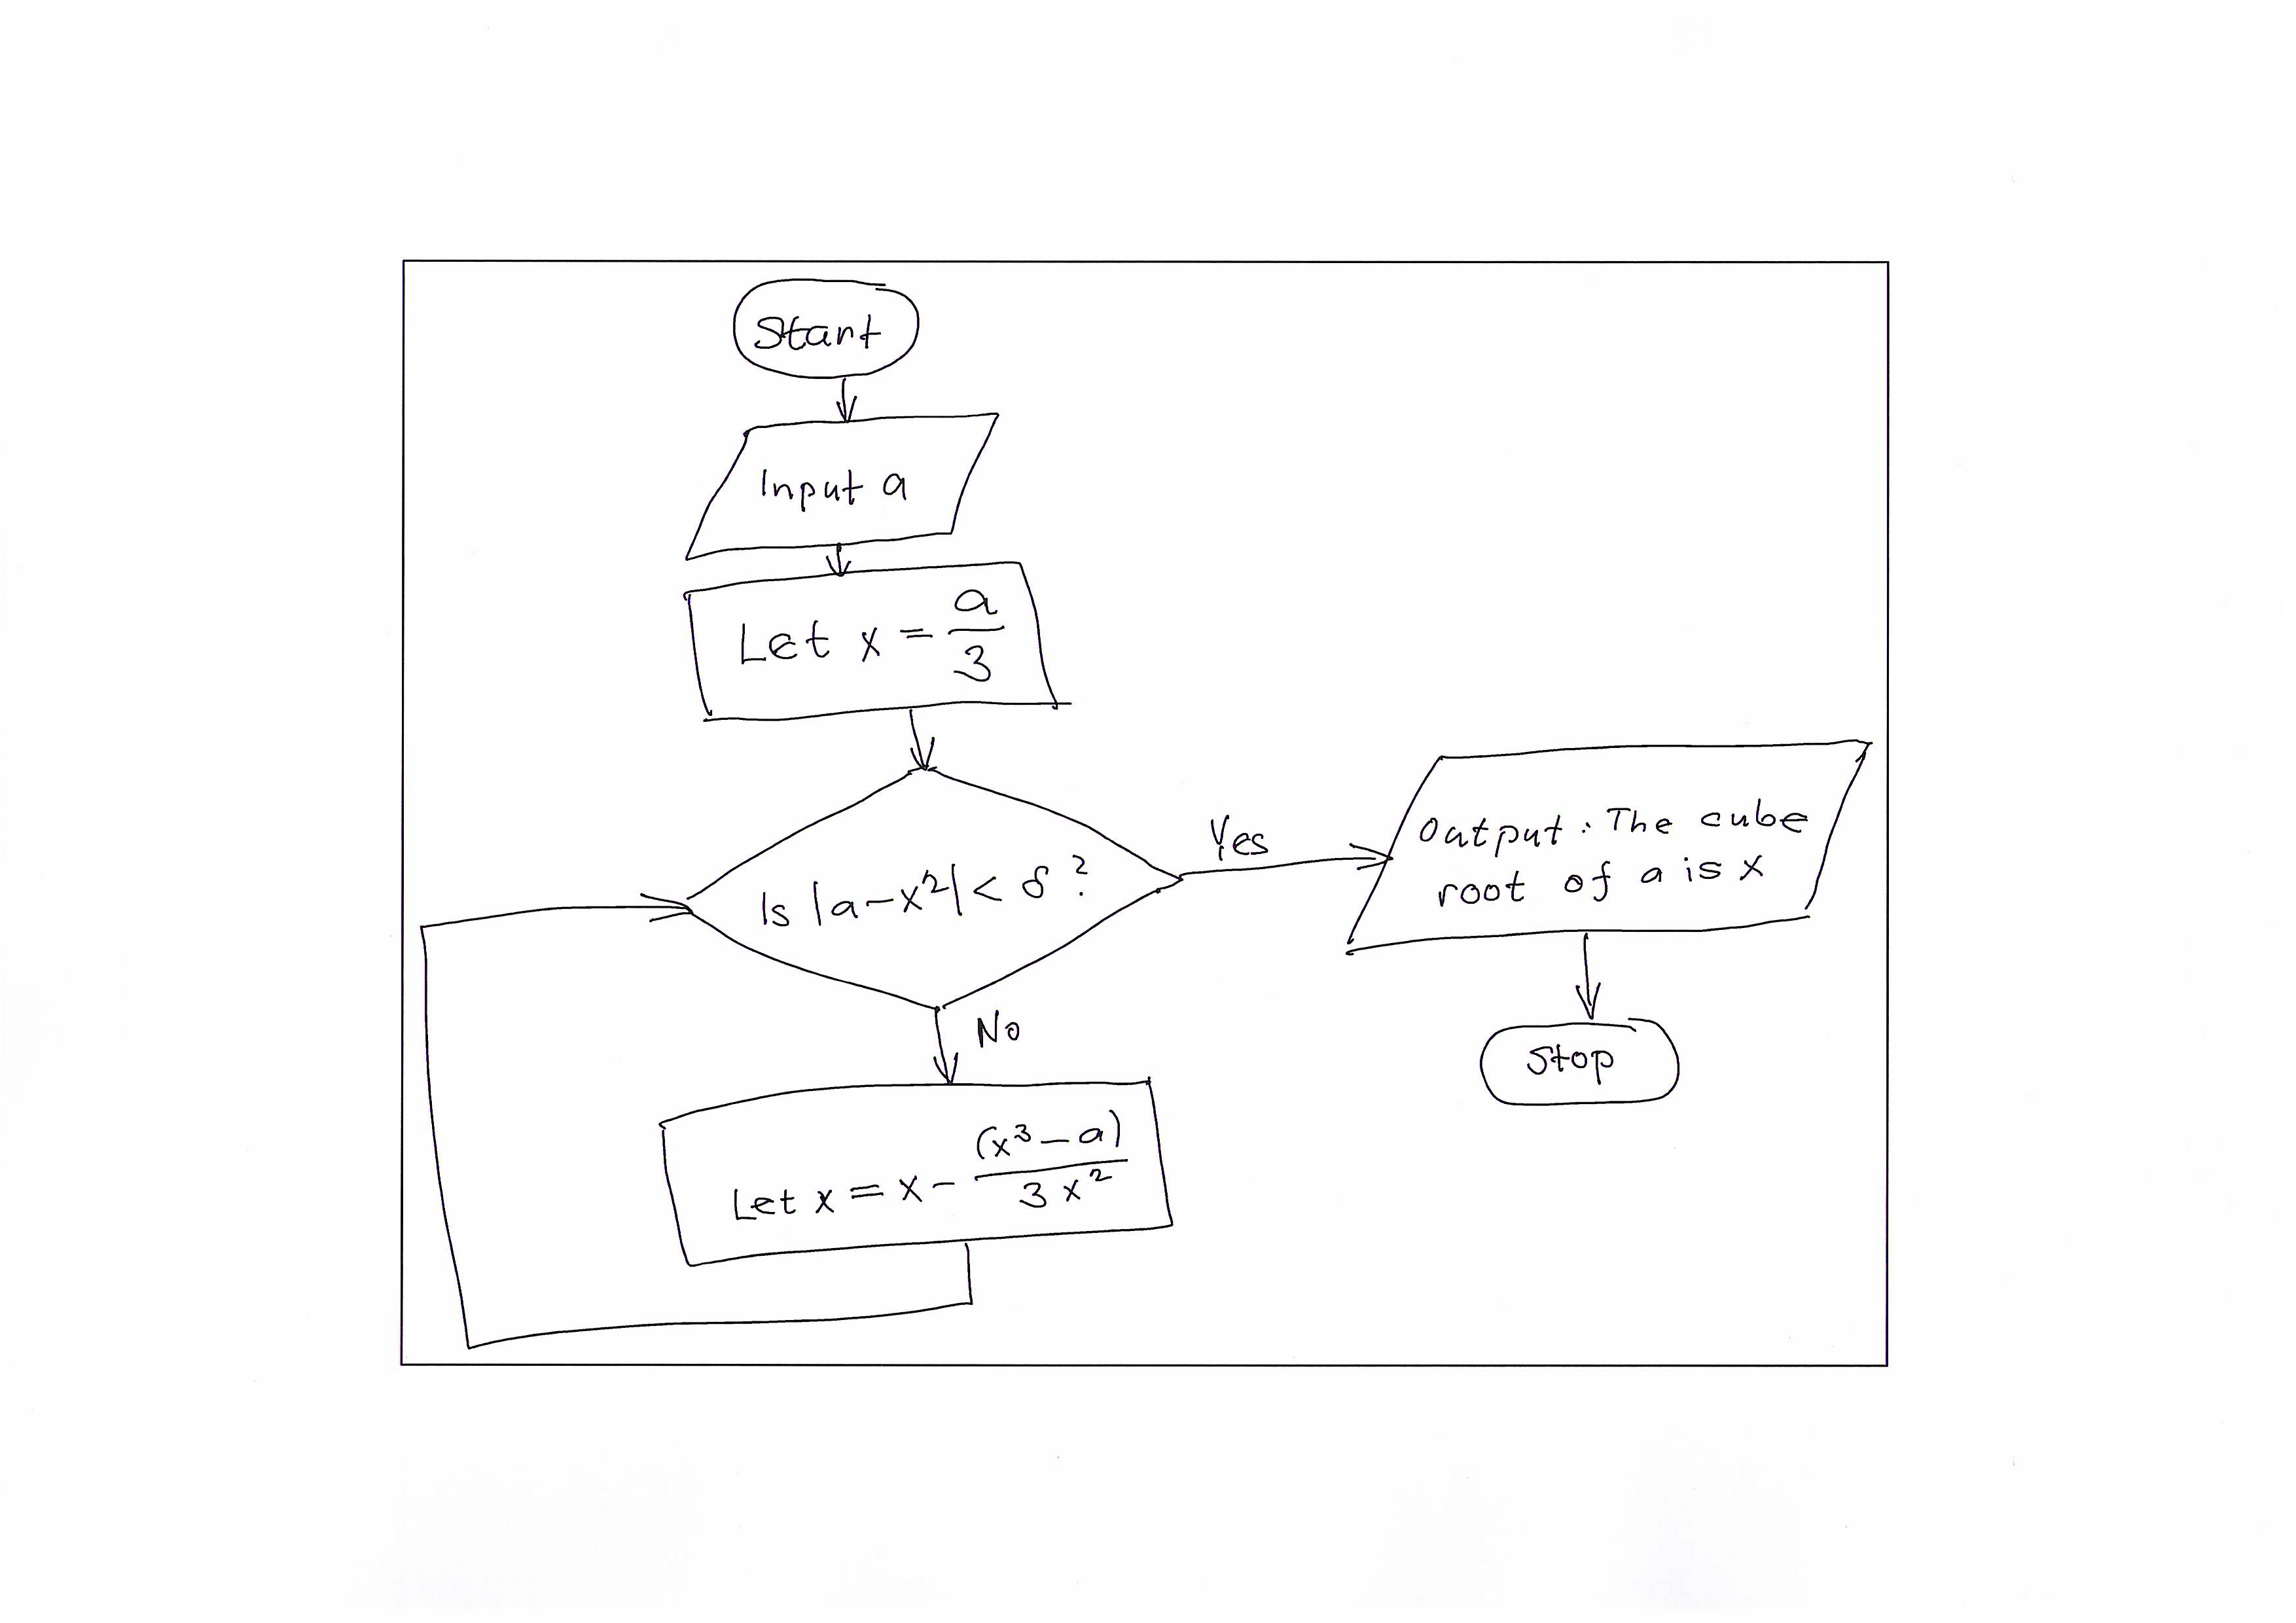 Start
Input a
Let x = a/3
Is |a-x²| < δ ?
Yes
Output: The cube
root of a is x
No
Stop
Let x = x - (x³ - a)/3x²